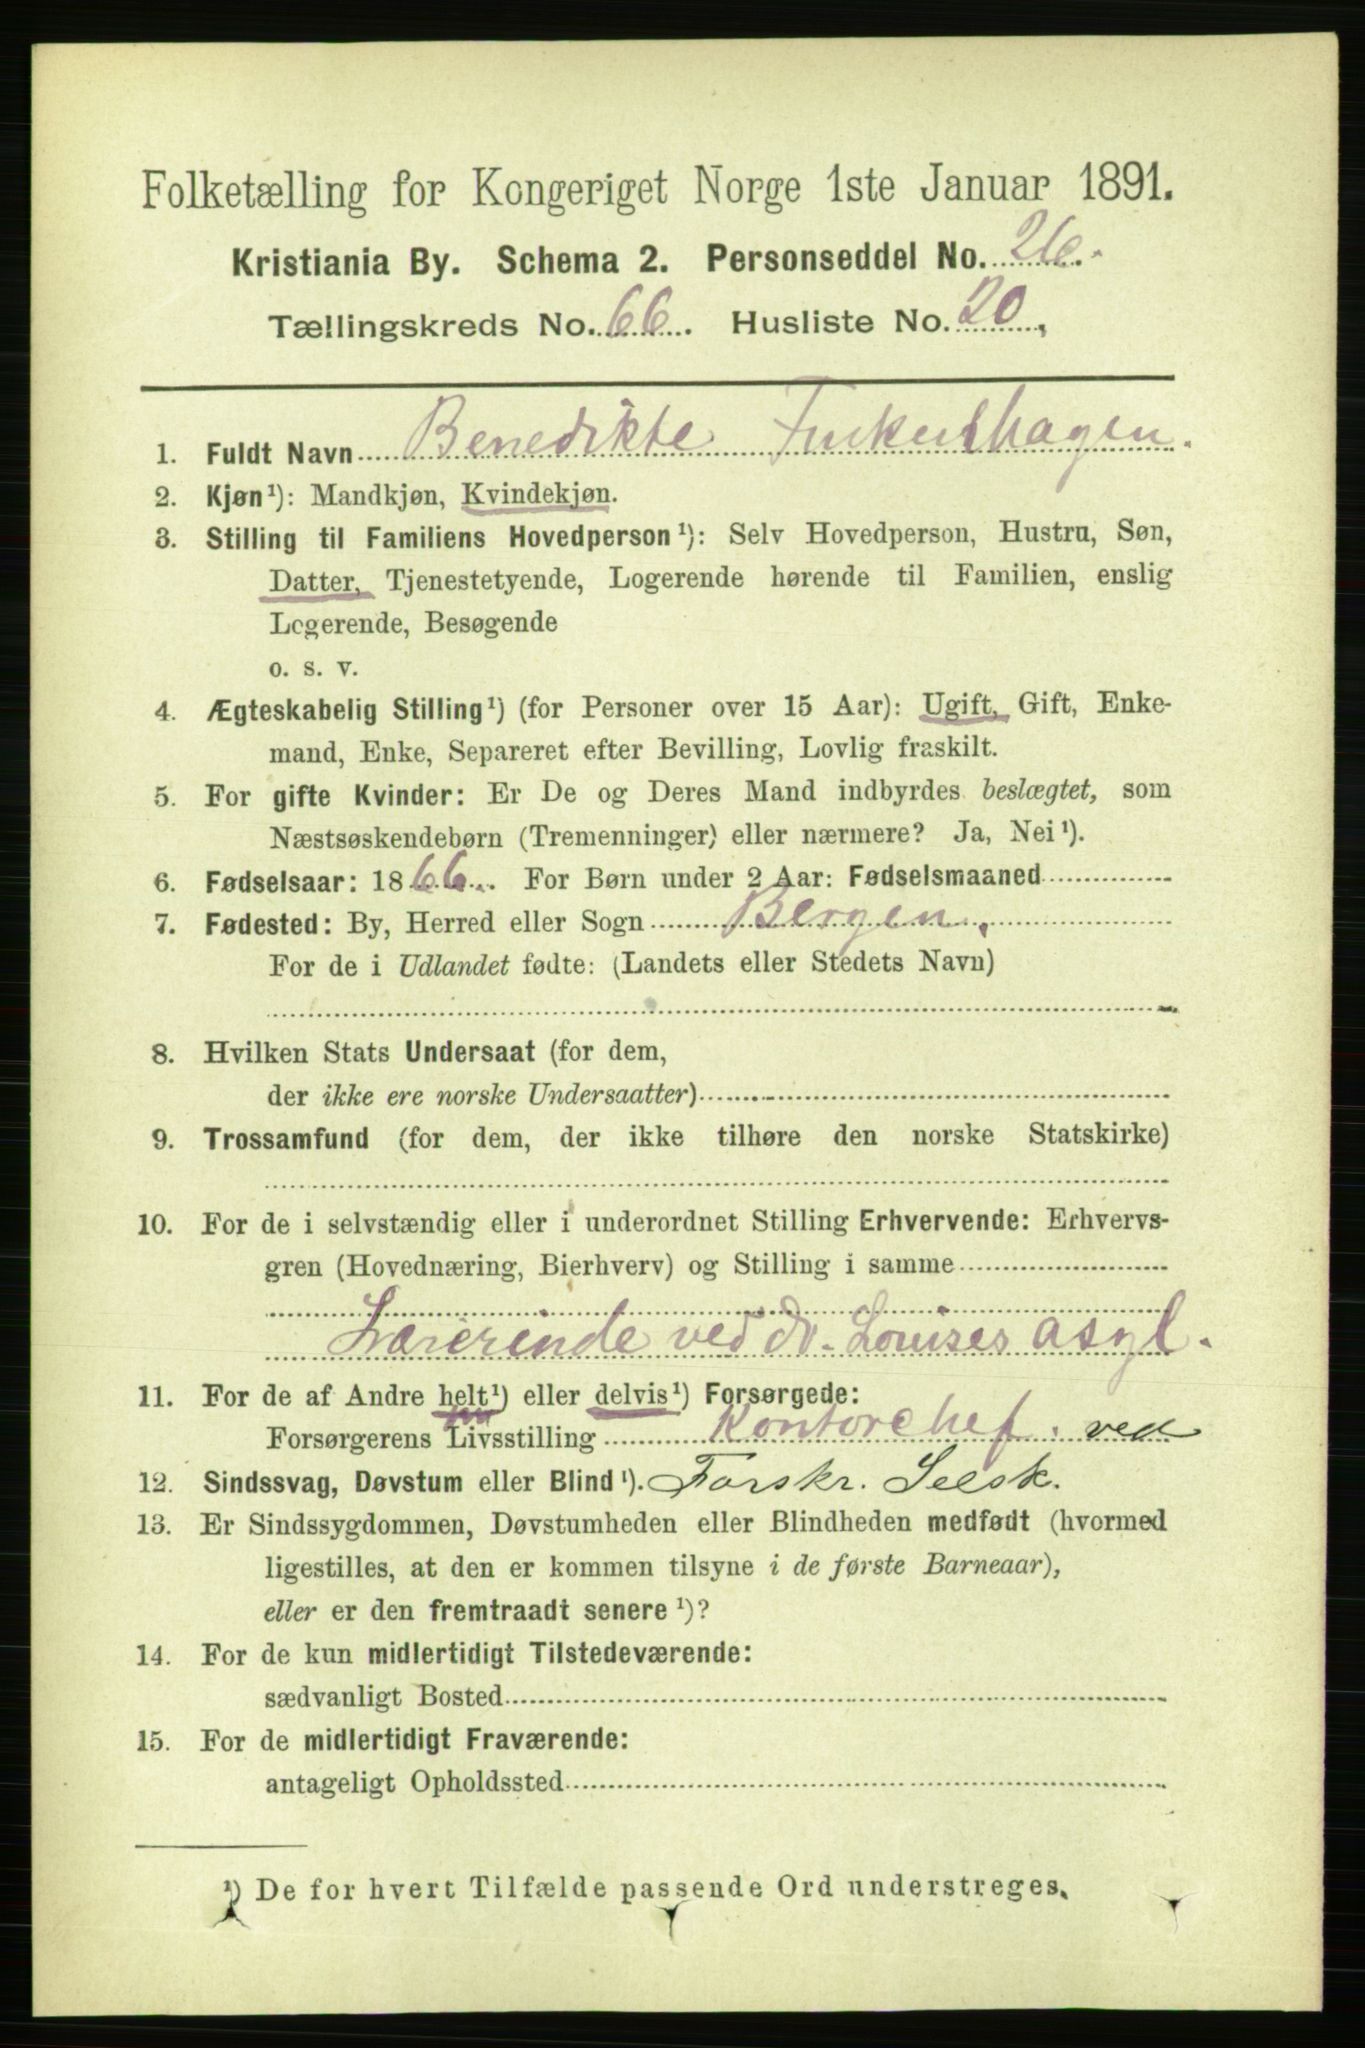 Folketælling for Kongeriget Norge 1ste Januar 1891.
Kristiania By. Schema 2. Personseddel No. 26.
Tællingskreds No. 66. Husliste No. 20,
1. Fuldt Navn Benedikte Finkenhagen.
2. Kjøn¹): Mandkjøn, Kvindekjøn.
3. Stilling til Familiens Hovedperson¹): Selv Hovedperson, Hustru, Søn,
Datter, Tjenestetyende, Logerende hørende til Familien, enslig
Logerende, Besøgende
o. s. v.
4. Ægteskabelig Stilling¹) (for Personer over 15 Aar): Ugift, Gift, Enke-
mand, Enke, Separeret efter Bevilling, Lovlig fraskilt.
5. For gifte Kvinder: Er De og Deres Mand indbyrdes beslægtet, som
Næstsøskendebørn (Tremenninger) eller nærmere? Ja, Nei¹).
6. Fødselsaar: 1866. For Børn under 2 Aar: Fødselsmaaned
7. Fødested: By, Herred eller Sogn Bergen.
For de i Udlandet fødte: (Landets eller Stedets Navn)
8. Hvilken Stats Undersaat (for dem,
der ikke ere norske Undersaatter)
9. Trossamfund (for dem, der ikke tilhøre den norske Statskirke)
10. For de i selvstændig eller i underordnet Stilling Erhvervende: Erhvervs-
gren (Hovednæring, Bierhverv) og Stilling i samme
Lærerinde ved Dr. Louises asyl.
11. For de af Andre helt¹) eller delvis¹) Forsørgede:
Forsørgerens Livsstilling Kontorchef. ved
12. Sindssvag, Døvstum eller Blind¹). Forskr. Selsk.
13. Er Sindssygdommen, Døvstumheden eller Blindheden medfødt (hvormed
ligestilles, at den er kommen tilsyne i de første Barneaar),
eller er den fremtraadt senere¹)?
14. For de kun midlertidigt Tilstedeværende:
sædvanligt Bosted
15. For de midlertidigt Fraværende:
antageligt Opholdssted
¹) De for hvert Tilfælde passende Ord understreges.